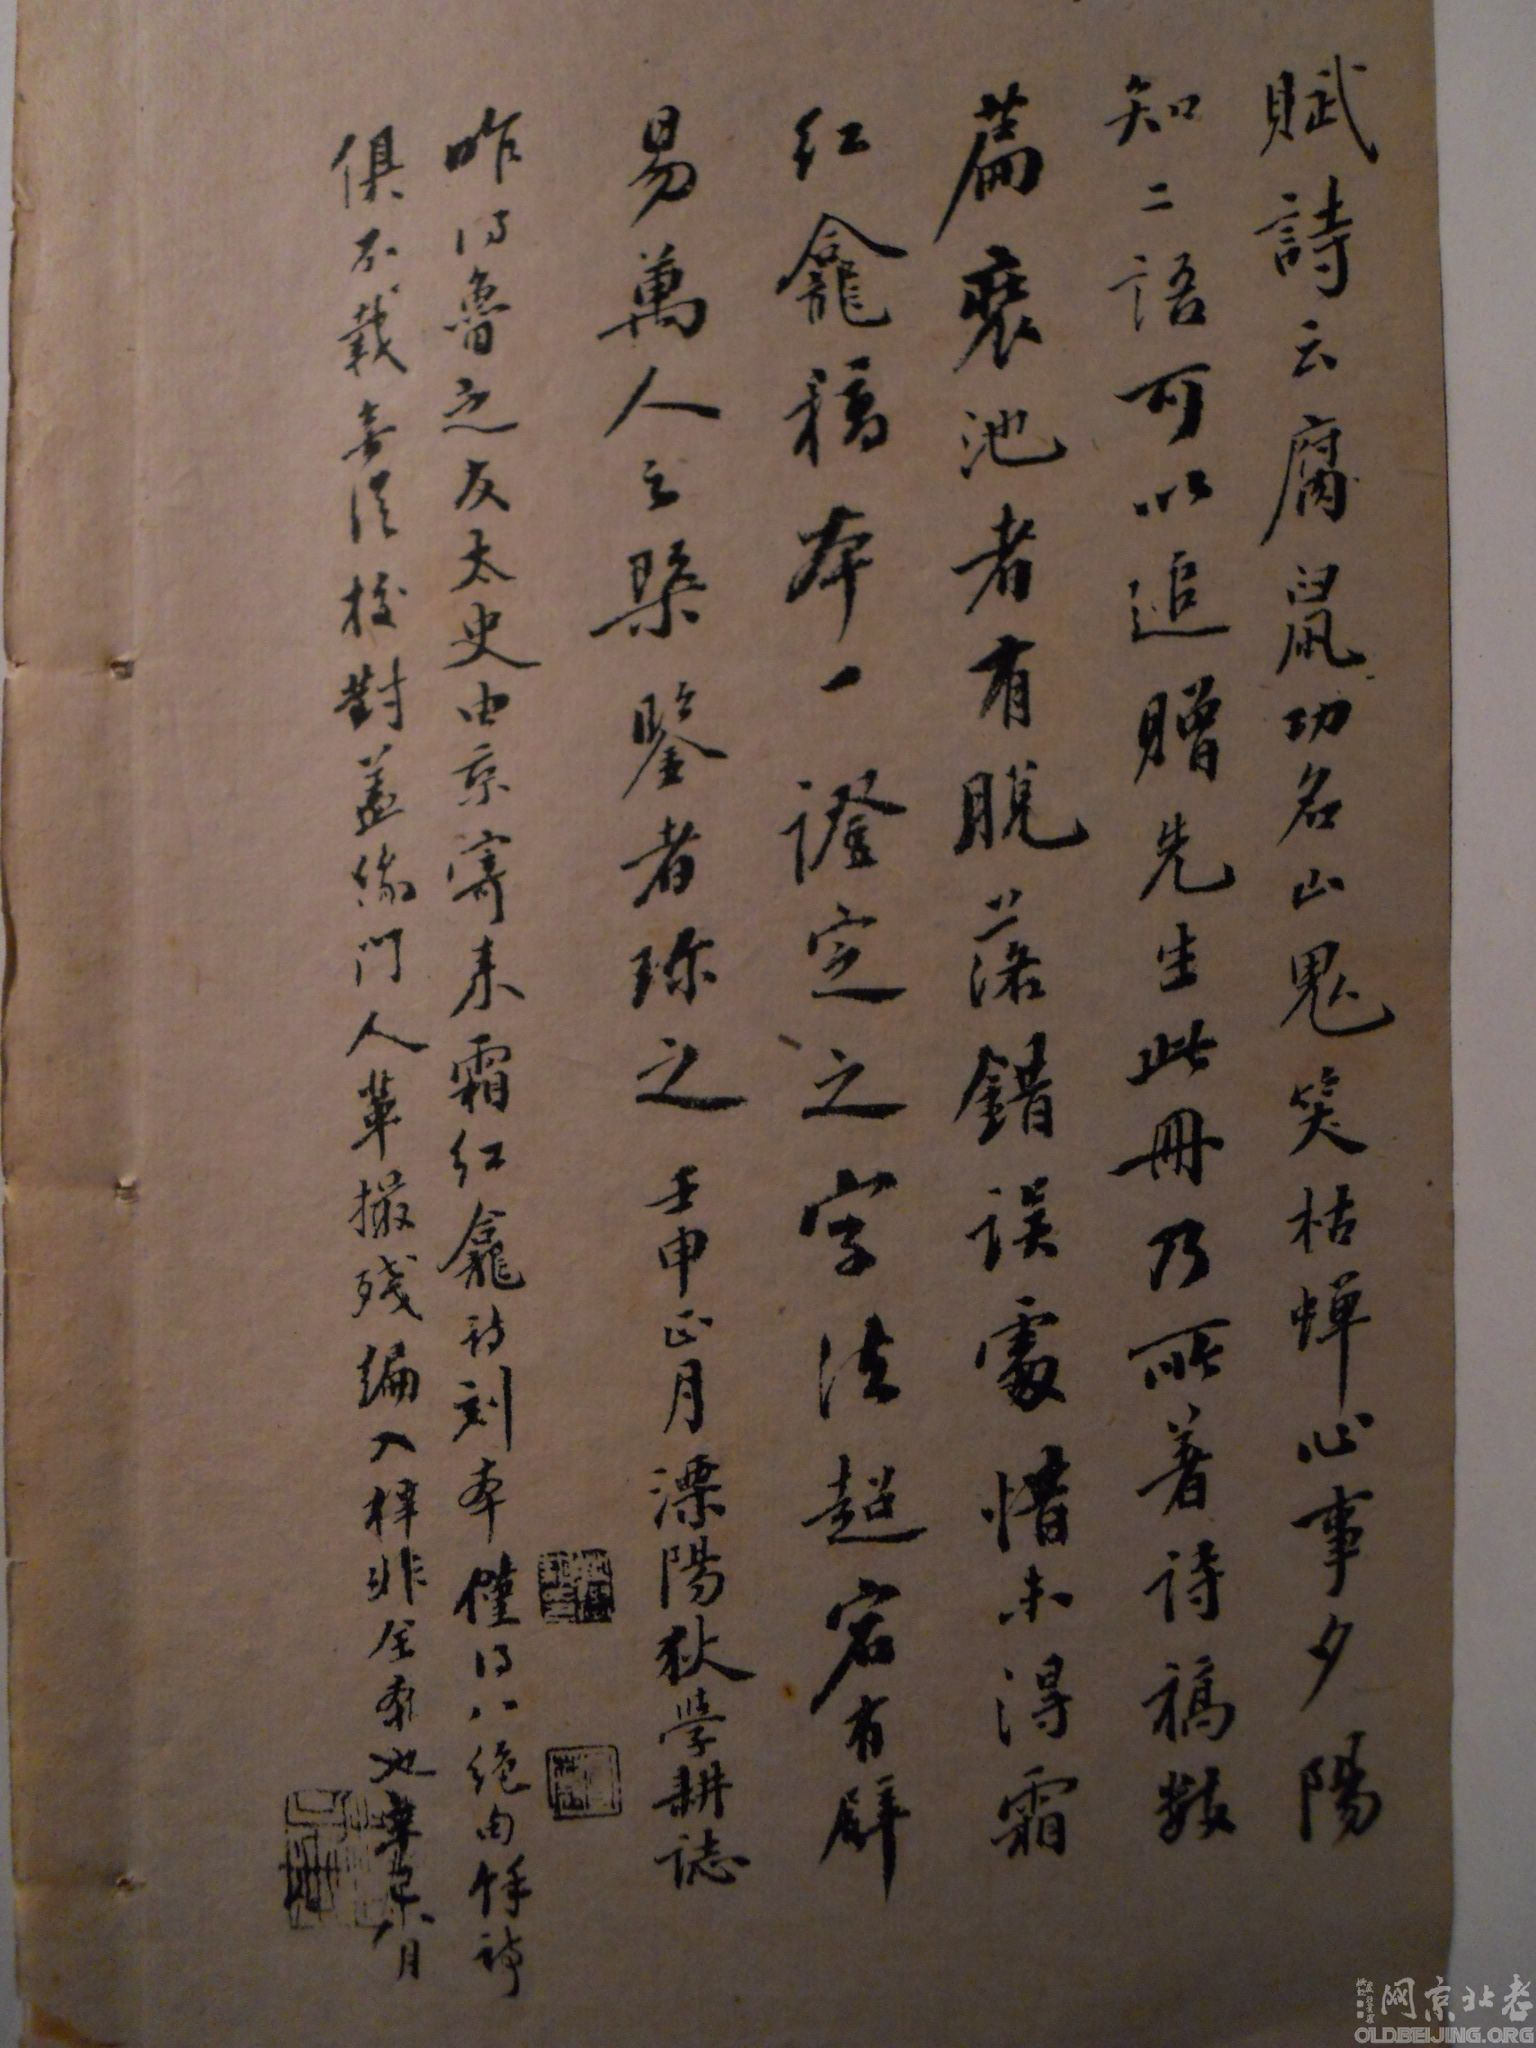 賦詩云腐鼠功名山鬼笑枯蟬心事夕陽
知二語可以追贈先生此冊乃所著詩稿數
篇裝池者有脫落錯誤處惜未得霜
紅龕稿本一證定之字法超宕有辟
易萬人之槩鑒者珍之壬申正月溧陽狄學耕誌
昨得魯之友太史由京寄來霜紅龕詩刻本僅得八絕句餘詩
俱不載無從校對蓋係門人輩撮殘編入梓非全本也 八月
老北京網
OLDBEIJING.ORG